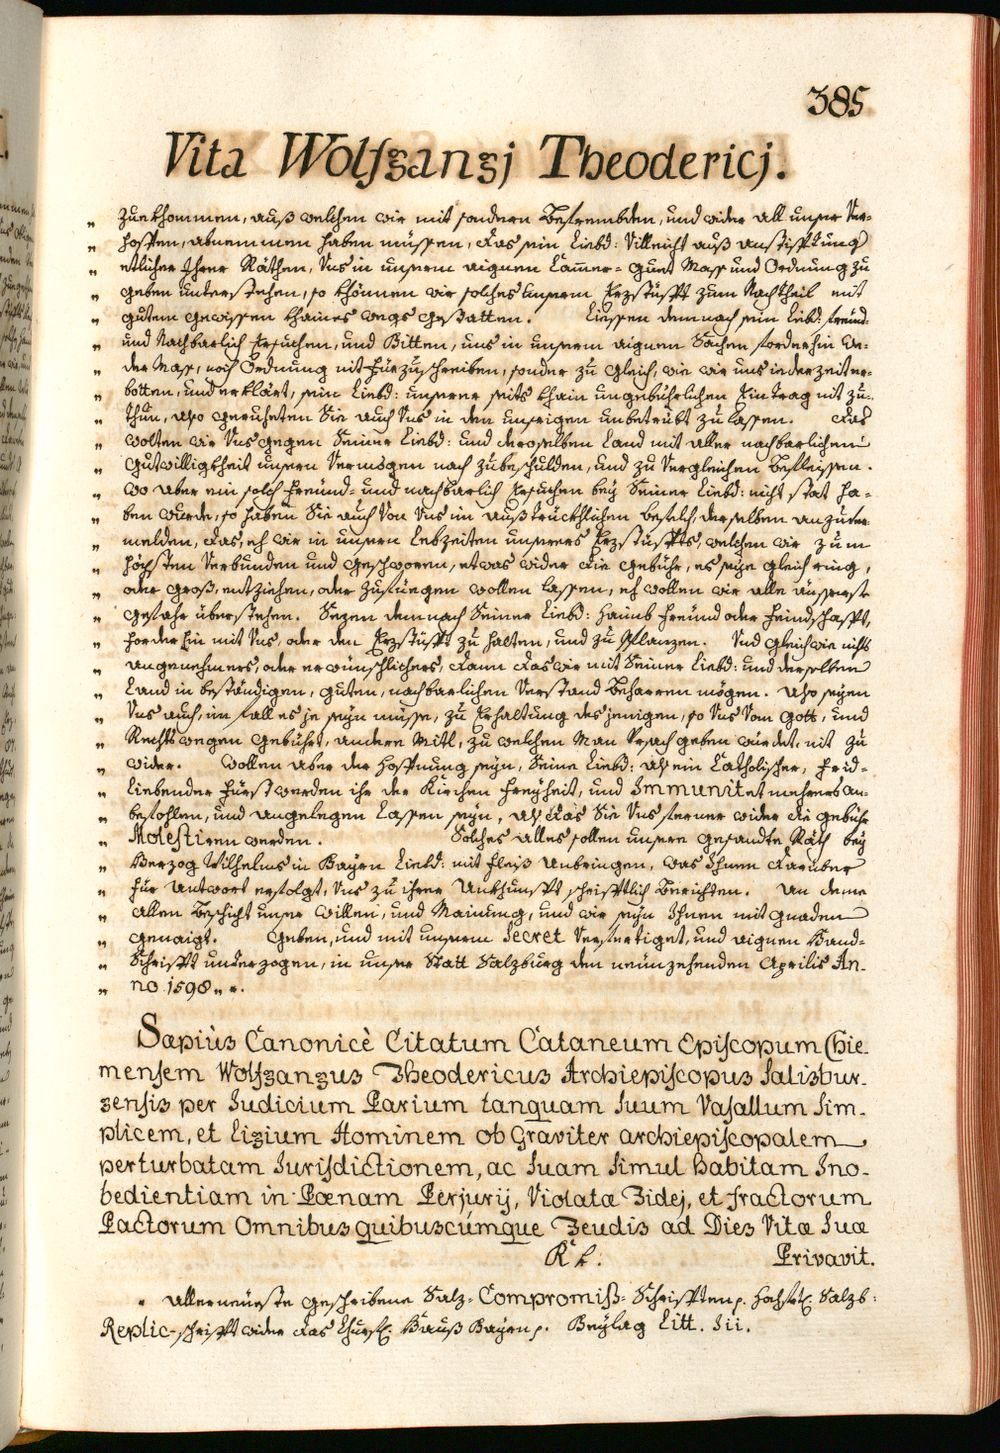 385
Vita Wolfgangj Theodericj.
„ Zuekhommen, auß welchen wir mit sondern Befrembden, und wider all unser Ver-
„ hoffen, abnemmen haben müssen, das sein Liebd: Villeicht auß anstifftung
„ etlicher Ihrer Räthen, Vns in unserm aignen Cam̄er-guet Mass und Ordnung zu
„ geben unterstehen, so khönnen wir solches unserm Erzstüfft zum Nachtheil mit
„ gutem gewissen khaines wegs gestatten. Liessen demnach sein Liebd: freünd-
„ und Nachbarlich ersuchen, und Bitten, uns in unserm aignen Sachen forderhin we-
„ der Mass, noch Ordnung nit fürzuschreiben, sonder zu gleich, wie wir uns iederzeit er-
„ botten, und erklärt, sein Liebd: unserer seits khain ungebührlichen Eintrag nit zu-
„ thun, also geruheten Sie auch Vns in den unsrigen unbetrübt zu lassen. Das
„ wolten wir Vns gegen Seiner Liebd: und deroselben Land mit aller nachbarlichen
„ Gutwilligkheit unsern Vermögen nach zubeschulden, und zu Vergleichen Befleissen.
„ Wo aber ein solch freünd- und nachbarlich Ersuchen bey Seiner Liebd: nicht stat ha-
„ ben wurde, so haben Sie auch Von Vns im außtrückhlichen befelch, derselben anzuver-
„ melden, das, eh wir in unsern Lebzeiten unserers Erzstüffts, welchen wir zum
„ höchsten Verbunden und geschworen, etwas wider die gebühr, es seÿe gleich ring,
„ oder groß, entziehen, oder zufüegen wollen lassen, eh wollen wir alle äusserste
„ gefahr überstehen. Sezen demnach Seiner Liebd: haimb freünd oder feindschafft,
„ forderhin mit Vns, oder den Erzstüfft zu halten, und zu Pflanzen. Vnd gleichwie nichts
„ angenehmers, oder erwünschlichers, dann das wir mit Seiner Liebd: und derselben
„ Land in beständigen, guten, nachbarlichen Verstand Beharren mögen. Also seÿen
„ Vns auch, im fall es je seÿn müsse, zu Erhaltung desjenigen, so Vns Vom Gott, und
„ Rechts wegen gebührt, andere Mitl, zu welchen Man Vrsach geben würdet, nit zu
„ wider. Wollen aber der Hoffnung seÿn, Seine Liebd: als ein Catholischer, Frid-
„ Liebender fürst werden ihr der Kirchen Freÿheit, und Immunitet mehrers an-
„ befohlen, und angelegen Lassen seÿn, als das Sie Vns ferner wider die gebühr
„ Molestiren werden. Solches alles sollen unsere gesandte Räth beÿ
„ Herzog Wilhelms in Bayrn Liebd: mit fleiß anbringen, was Ihnen darüber
„ für Antwort erfolgt, Vns zu ihrer Ankhunfft schrifftlich Berichten. An deme
„ allen Beschicht unser Willen, und Mainung, und wir seÿn Ihnen mit gnaden
„ genaigt. Geben, und mit unserm Secret Verfertiget, und aignen Hand-
„ Schrifft underzogen, in unser Statt Salzburg den neünzehenden Aprilis An-
„ no 1598.
Sæpiùs Canonicè Citatum Cataneum Episcopum Chie-
mensem Wolfgangus Theodericus Archiepiscopus Salisbur-
gensis per Judicium Parium tanquam suum Vasallum sim-
plicem, et Ligium Hominem ob Graviter archiepiscopalem
perturbatam Jurisdictionem, ac suam simul habitam Ino-
bedientiam in Pœnam Perjurij, Violatæ Fidej, et fractorum
Pactorum Omnibus quibuscúmque Feudis ad Dies Vitæ suæ
Privavit.
Allerneüeste geschribene Salz-Compromiß-Schrifften p. Hochstf. Salzb:
Replic-schrifft wider das Churf. Hauß Bayrn p. Beylag Litt. Iii.